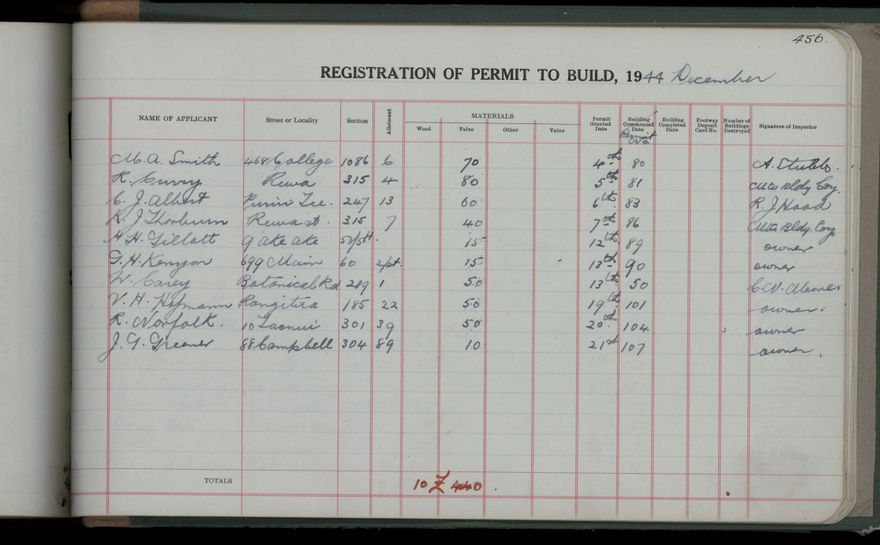 456.
REGISTRATION OF PERMIT TO BUILD, 1944 December
NAME OF APPLICANT Street or Locality Section Allotment MATERIALS Wood Value Other Value Permit Granted Date Building Commenced Date Permit No. Building Completed Date Footway Deposit Card No. Number of Buildings Destroyed Signature of Inspector
M. A. Smith 468 College 1086 6 70 4th 80 A. Stubbs.
R. Curry Rewa 315 4 80 5th 81 Bldg Coy.
C. J. Albert Tce. 247 13 60 6th 83 R. J. Hood
R. J. Thorburn Rewa st. 315 7 40 7th 86 Bldg. Coy
H. H. Gillatt 9 Ake Ake 15 12th 89 owner
G. H. Kenyon 699 Main 60 2/pt. 15 13th 90 owner
W. Carey Botanical Rd 289 1 50 13th 50
V. H. Hofmann Rangitira 185 22 50 19th 101 owner.
R. Norfolk. 10 Taonui 301 39 50 20th 104 owner
J. G. Greener 88 Campbell 304 89 10 21st 107 owner.
TOTALS 10 £ 440.